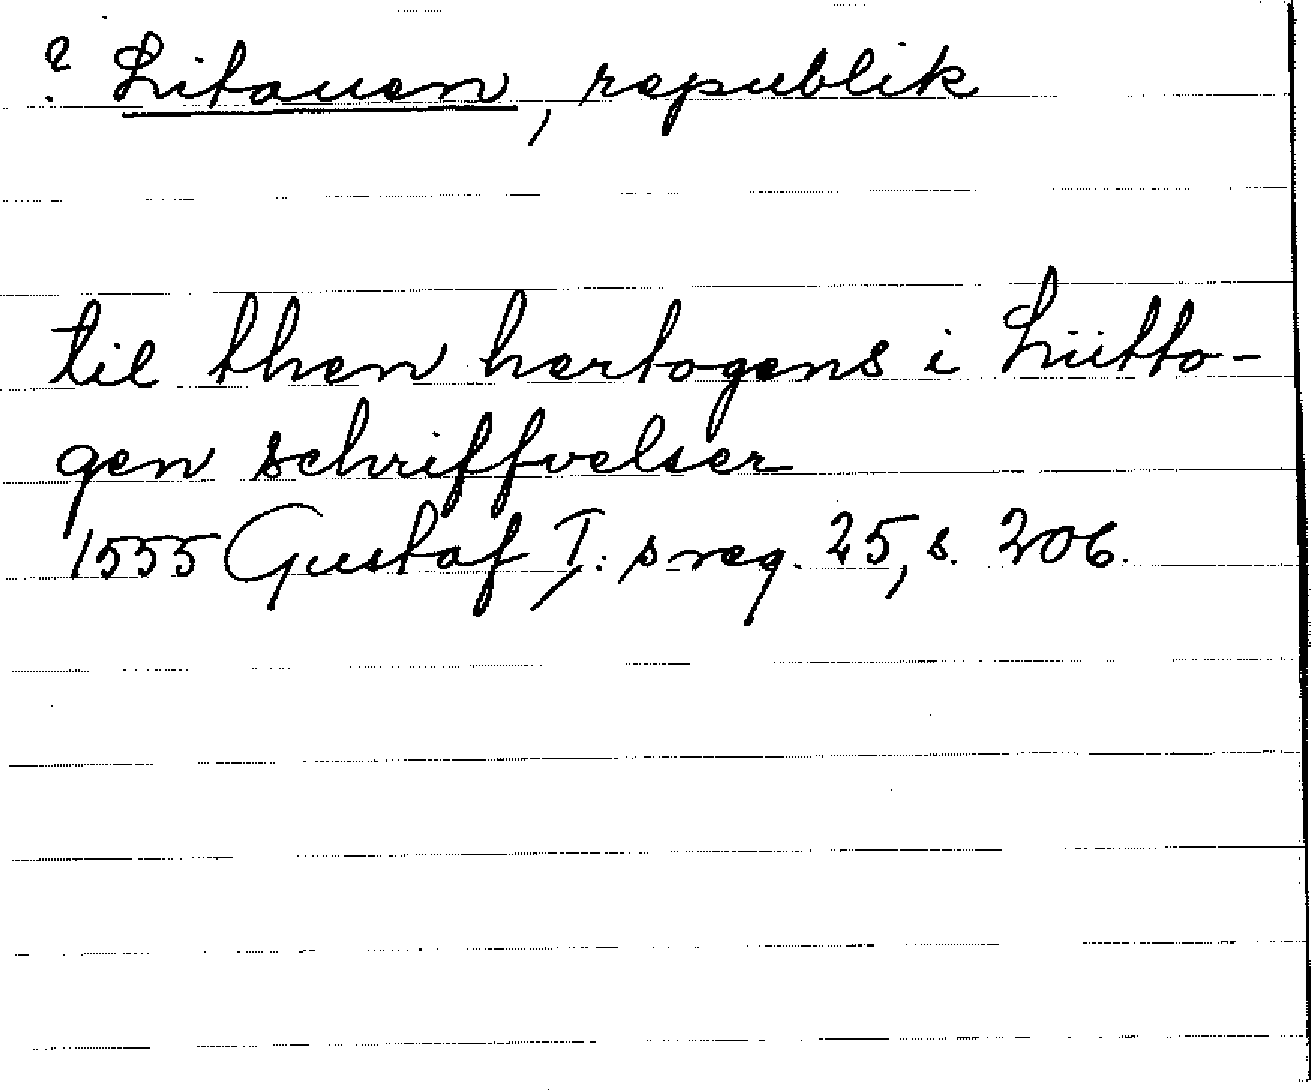 ? Litauen, republik
til then hertogens i Lütto-
gen schriffvelser
1555 Gustaf I:s reg. 25, s. 206.